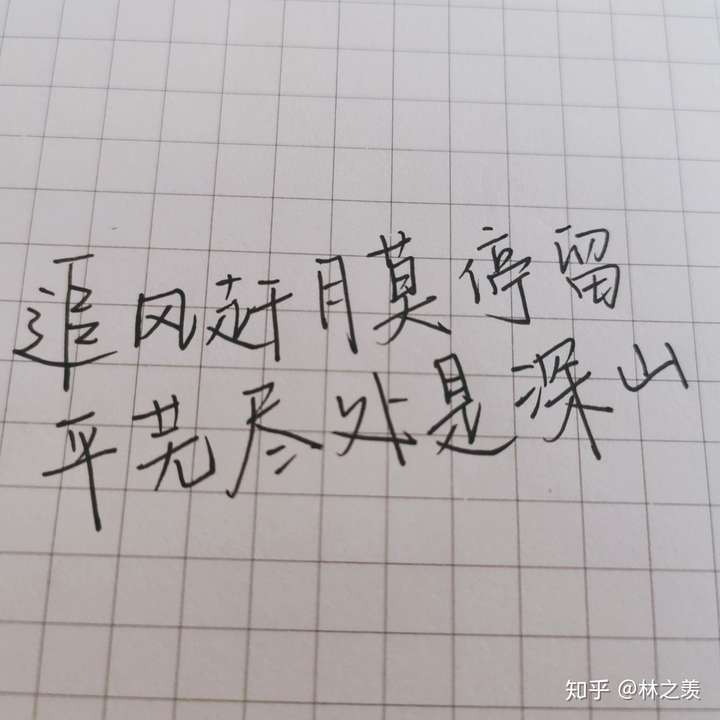 追风赶月莫停留
平芜尽处是深山
知乎 @林之羡